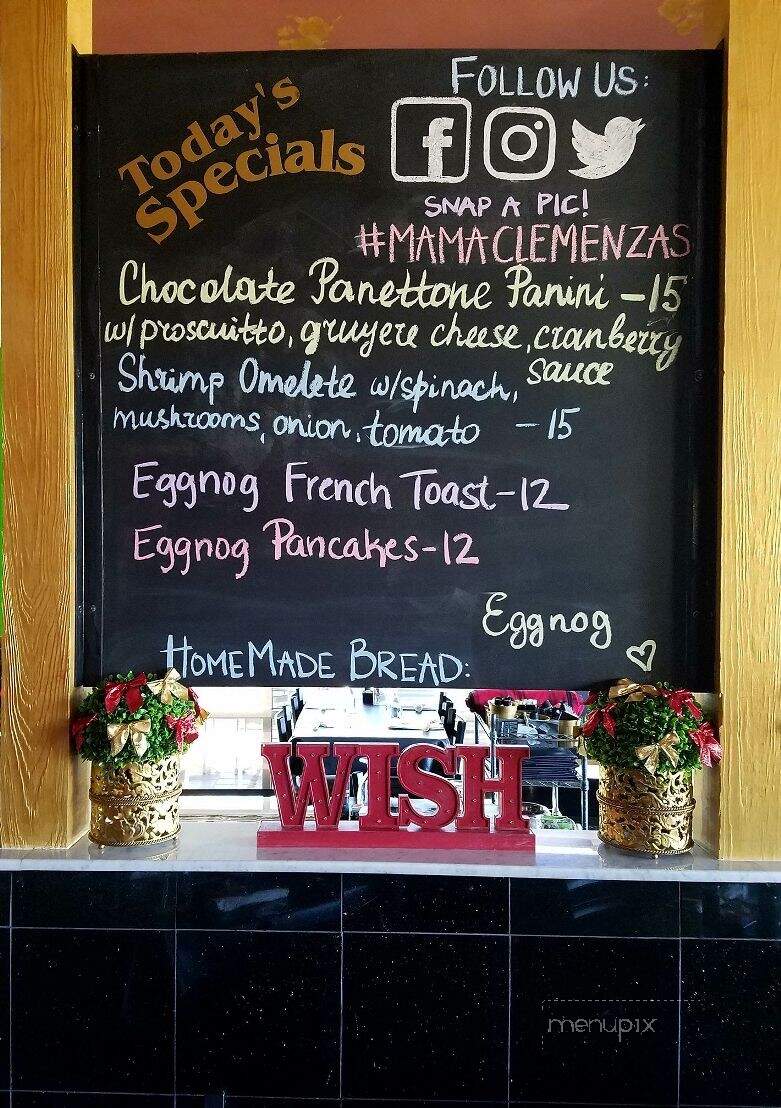 Today's
Specials
FOLLOW US:
f
SNAP A PIC!
#MAMACLEMENZAS
Chocolate Panettone Panini -15
w/ proscuitto, gruyere cheese, cranberry
sauce
Shrimp Omelete w/spinach,
mushrooms, onion, tomato -15
Eggnog French Toast-12
Eggnog Pancakes-12
Eggnog
HOMEMADE BREAD:
WISH
menupix